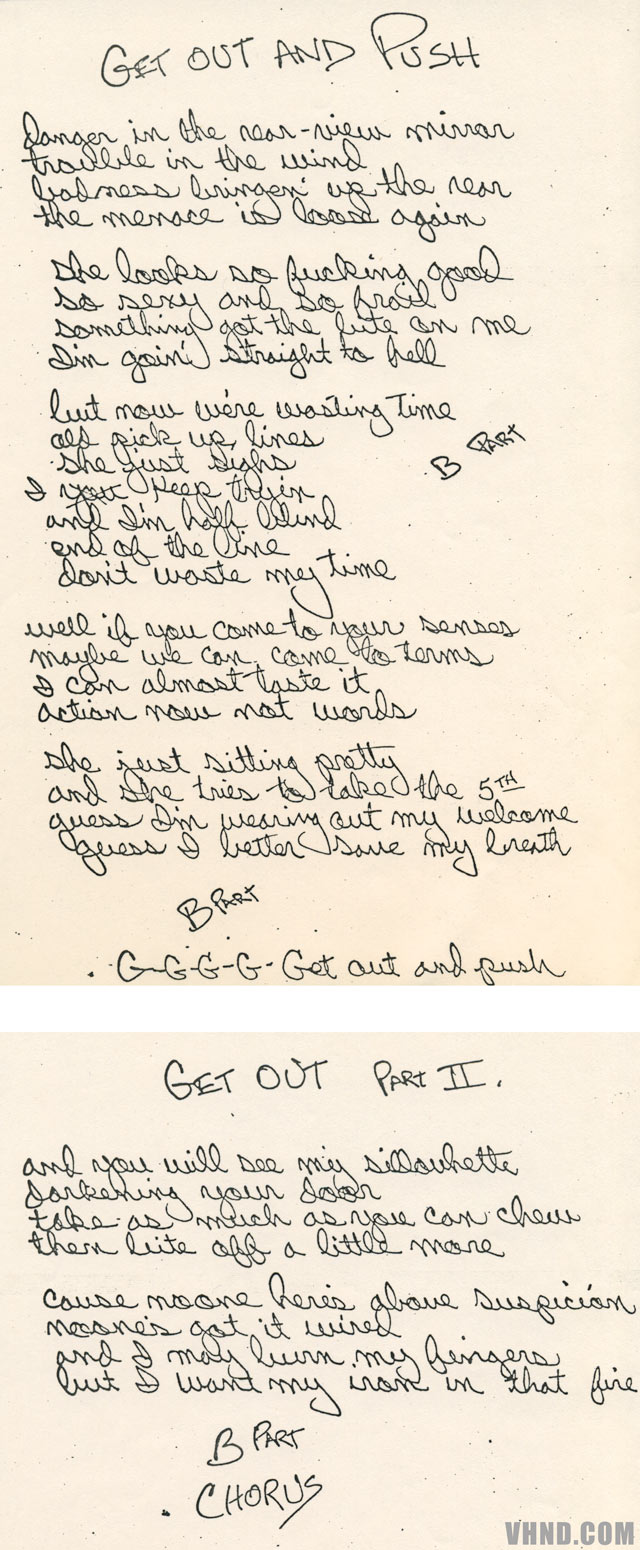 GET OUT AND PUSH
danger in the rear-view mirror
trouble in the wind
badness bringen' up the rear
the menace is loose again
She looks so fucking good
so sexy and so frail
something got the bite on me
I'm goin' straight to hell
but now we're wasting Time
old pick up lines
she just sighs
I you keep tryin
and I'm half blind
end of the line
don't waste my time
B PART
well if you come to your senses
maybe we can come to terms
I can almost taste it
action now not words
she just sitting pretty
and she tries to take the 5TH
guess I'm wearing out my welcome
guess I better save my breath
B PART
. G-G-G-G- Get out and push
GET OUT PART II.
and you will see my sillouhette
darkening your door
take as much as you can chew
then bite off a little more
cause noone here's above suspicion
noone's got it wired
and I may burn my fingers
but I want my iron in that fire
B PART
. CHORUS
VHND.COM